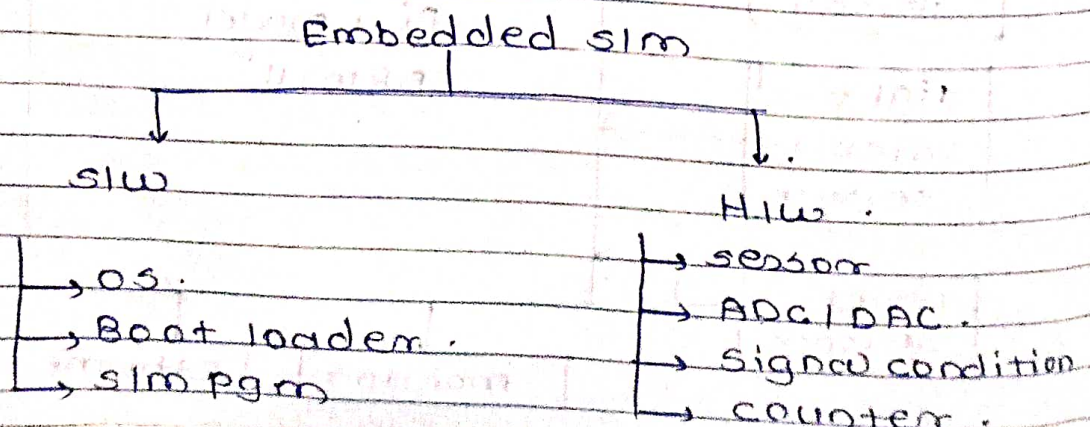 Embedded s/m
S/W
H/W.
OS.
Boot loader.
s/m pgm
sensor
ADC / DAC.
Signal condition
counter.